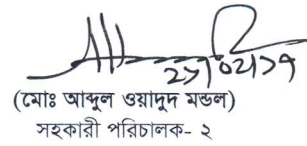 ২১/০২/১৭
(মোঃ আব্দুল ওয়াদুদ মন্ডল)
সহকারী পরিচালক- ২